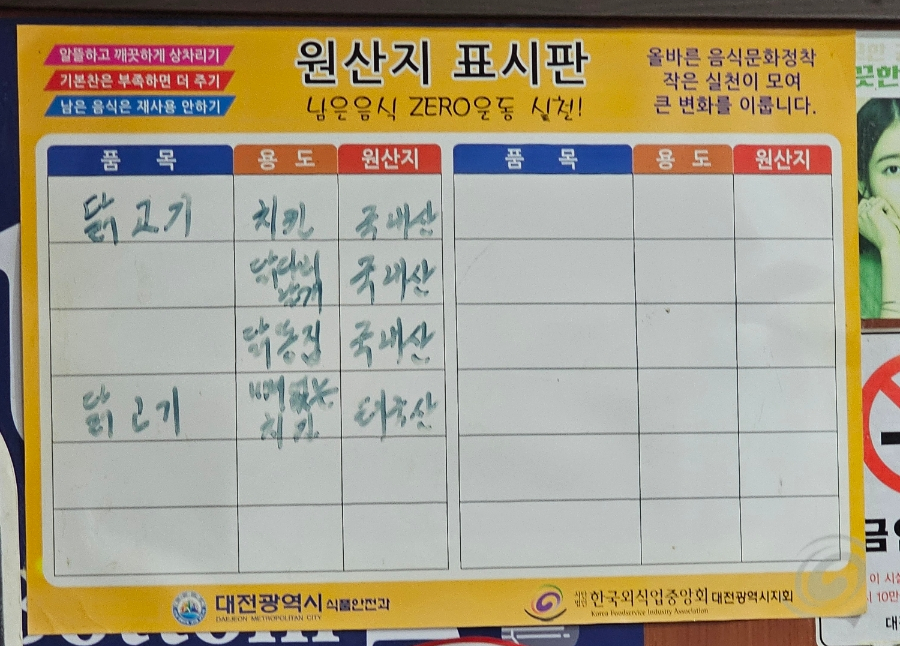 알뜰하고 깨끗하게 상차리기
기본찬은 부족하면 더 주기
남은 음식은 재사용 안하기
원산지 표시판
남은음식 ZERO운동 실천!
올바른 음식문화정착
작은 실천이 모여
큰 변화를 이룹니다.
품 목 용 도 원산지 품 목 용 도 원산지
닭고기 치킨 국내산
닭다리 날개 국내산
닭똥집 국내산
닭고기 뼈없는 치킨 태국산
대전광역시 식품안전과
DAEJEON METROPOLITAN CITY
사단법인 한국외식업중앙회 대전광역시지회
Korea Foodservice Industry Association
끗한
금연
이 시설
10만
bottom